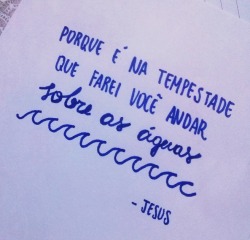 PORQUE É NA TEMPESTADE
QUE FAREI VOCÊ ANDAR
sobre as águas
- JESUS